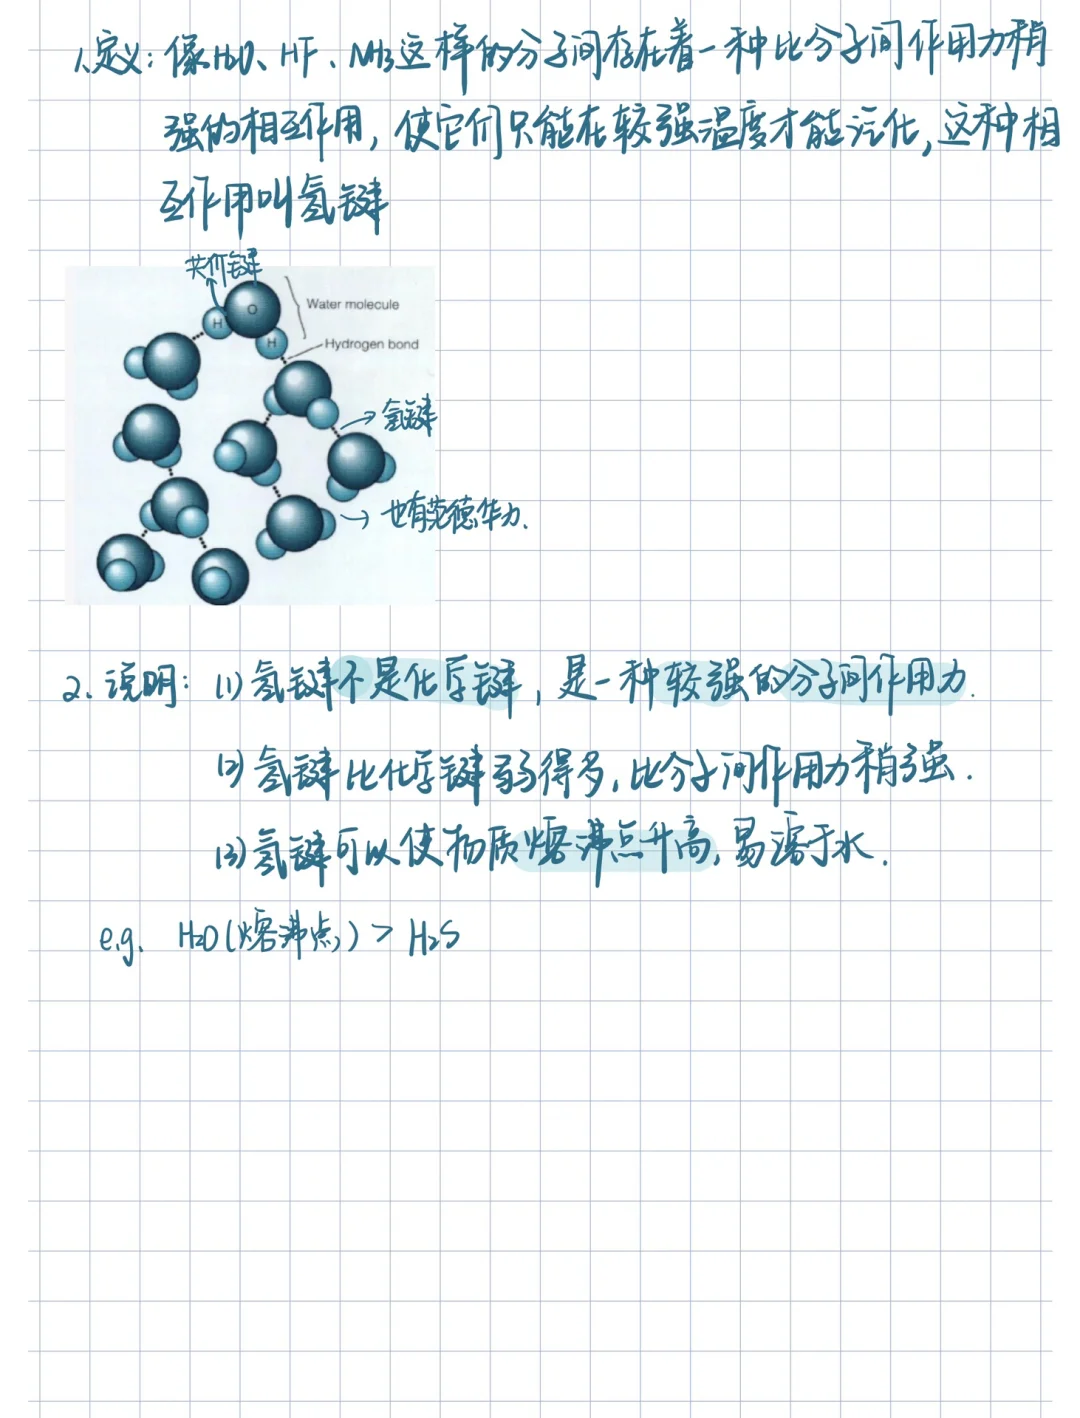 1、定义：像H₂O、HF、NH₃这样的分子间存在着一种比分子间作用力稍
强的相互作用，使它们只能在较强温度才能汽化，这种相
互作用叫氢键
共价键
O
Water molecule
H
H
Hydrogen bond
氢键
也有范德华力.
2、说明：(1)氢键不是化学键，是一种较强的分子间作用力.
(2)氢键比化学键弱得多，比分子间作用力稍强.
(3)氢键可以使物质熔沸点升高，易溶于水.
e.g. H₂O(熔沸点) > H₂S